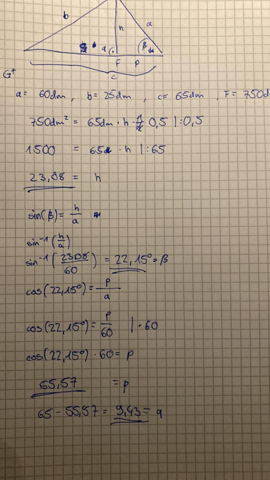 b
h
a
q
β
F
p
c
a = 60dm, b = 25dm, c = 65dm, F = 750d
750dm² = 65dm · h · 0,5 | : 0,5
1500 = 65d · h | : 65
23,08 = h
sin(β) = h/a
sin⁻¹(h/a)
sin⁻¹(2308/60) = 22,15° = β
cos(22,15°) = p/a
cos(22,15°) = p/60 | · 60
cos(22,15°) · 60 = p
65,57 = p
65 - 55,57 = 9,43 = q